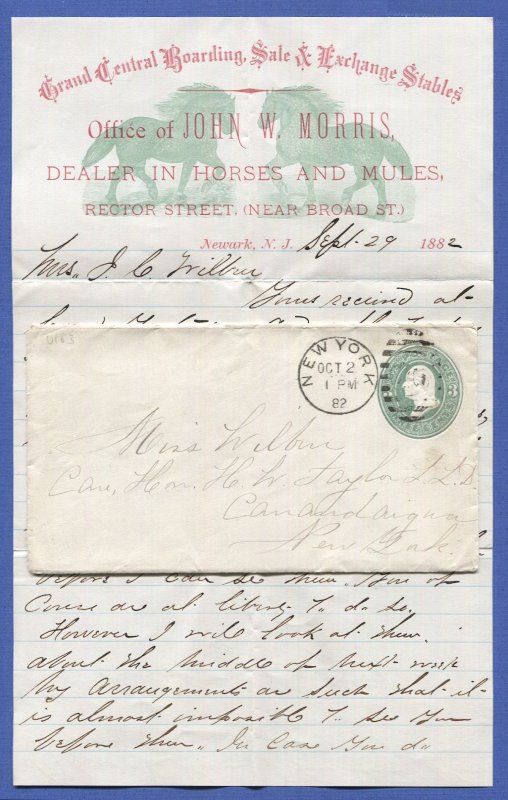 Grand Central Boarding, Sale & Exchange Stables
Office of JOHN W. MORRIS,
DEALER IN HORSES AND MULES,
RECTOR STREET, (NEAR BROAD ST.)
Newark, N. J. Sept. 29 1882
Mrs. J. C. Wilbur
Yours received at-
U163
NEW YORK
OCT 2
1 PM
82
Miss Wilbur
Care, Hon. H. W. Taylor L.L.D.
Canandaigua
New York.
before I can see them. You of
Corse are at liberty to do so.
However I will look at them.
about the middle of next week
my arrangements are such that it-
is almost imposible to see you
before then. In case you do